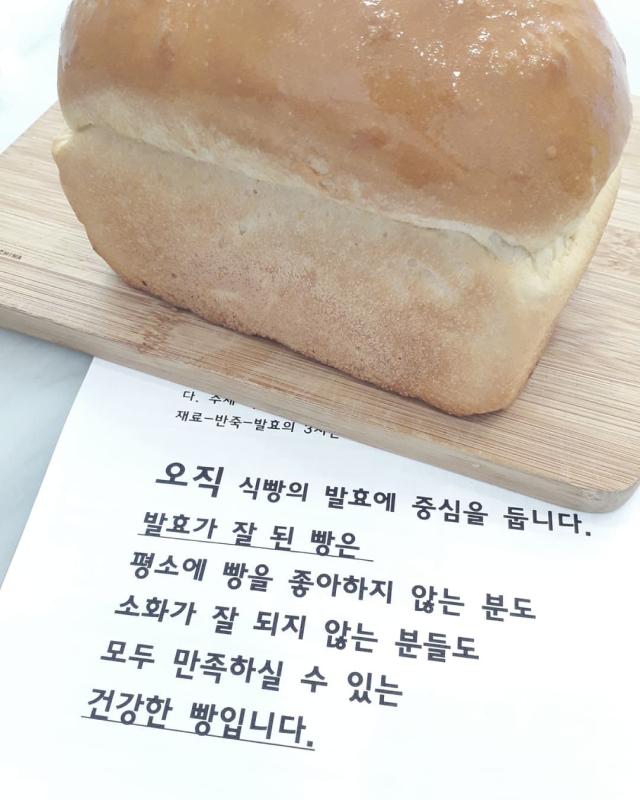 CHINA
다. 주재
재료-반죽-발효의 3
오직 식빵의 발효에 중심을 둡니다.
발효가 잘 된 빵은
평소에 빵을 좋아하지 않는 분도
소화가 잘 되지 않는 분들도
모두 만족하실 수 있는
건강한 빵입니다.